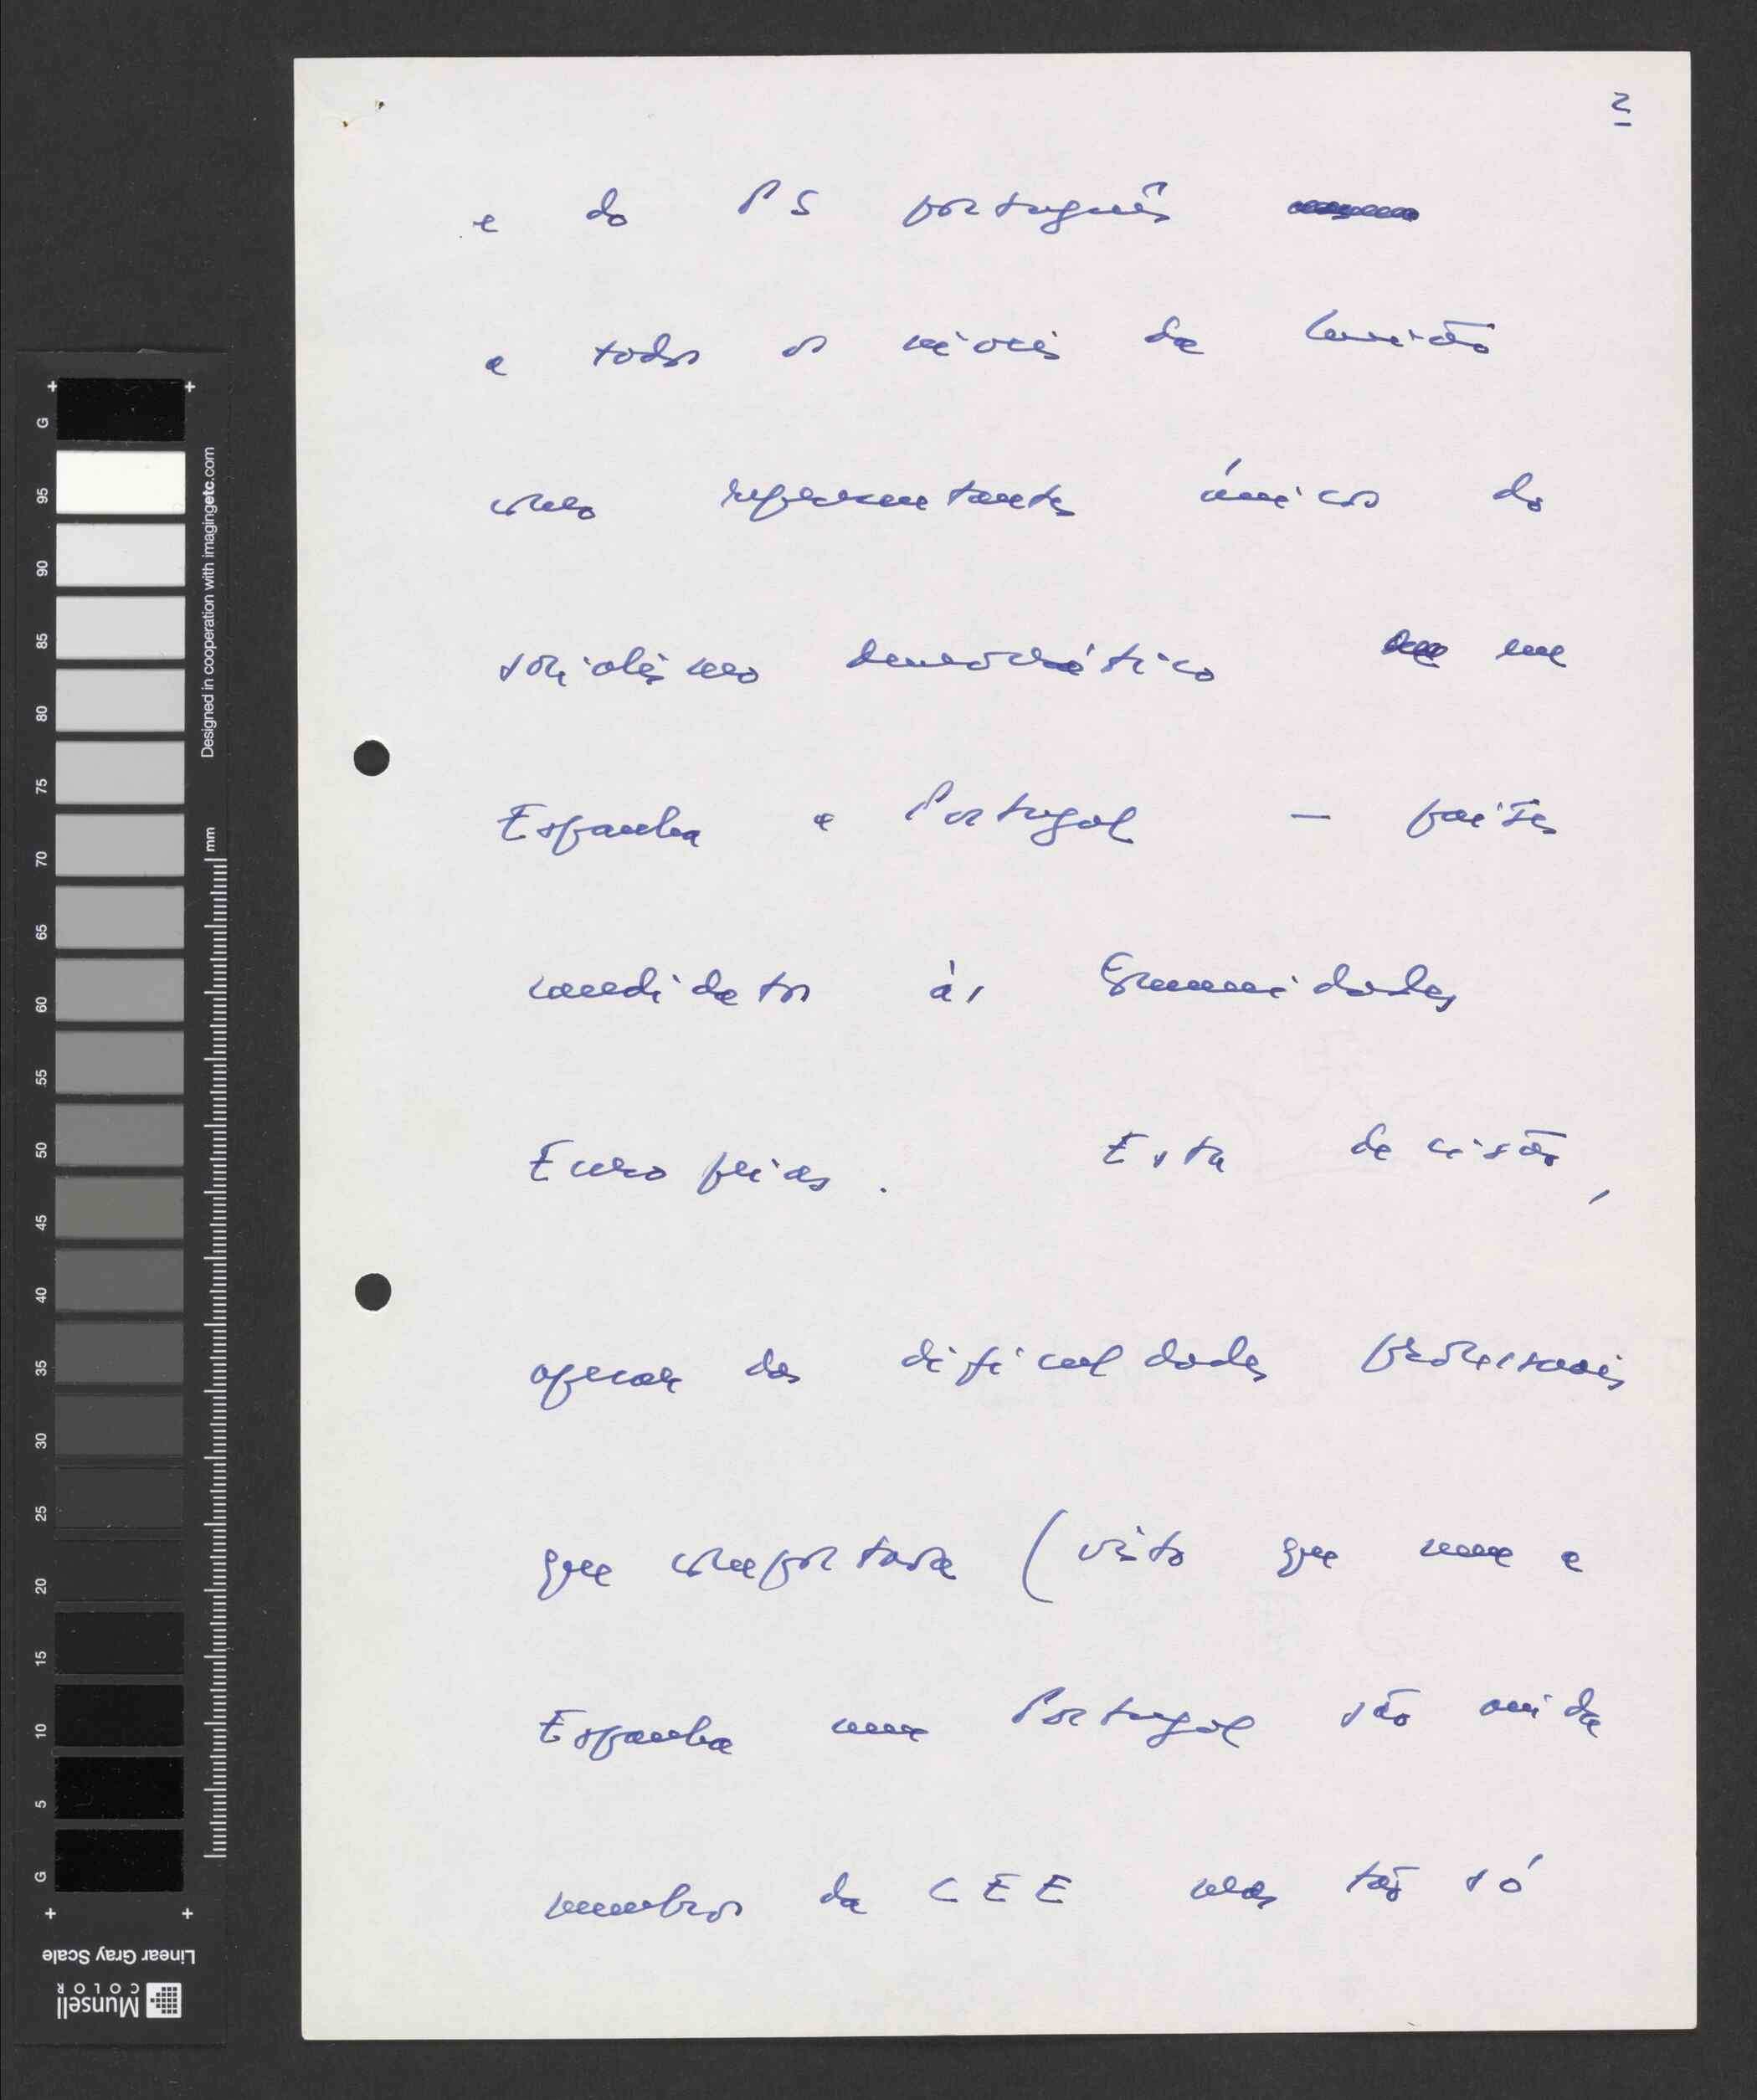 2
e do PS português
a todos os níveis da União
como representantes únicos do
socialismo democrático em
Espanha e Portugal — países
candidatos às Comunidades
Europeias. Esta decisão,
apesar das dificuldades processuais
que comportava (visto que nem a
Espanha nem Portugal são ainda
membros da CEE mas tão só
G 95 90 85 80 75 70 65 60 55 50 45 40 35 30 25 20 15 10 5 G
Designed in cooperation with imagingetc.com
mm
Linear Gray Scale
Munsell
COLOR